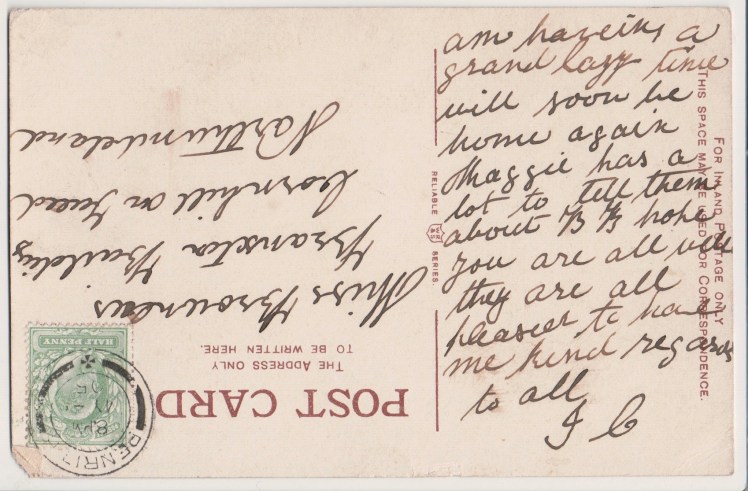 am haveing a
grand lazy time
will soon be
home again
Maggie has a
lot to tell them
about B B hope
you are all well
they are all
pleased to have
me kind regards
to all
I C
FOR INLAND POSTAGE ONLY
THIS SPACE MAY BE USED FOR CORRESPONDENCE.
RELIABLE
SERIES.
POST CARD
THE ADDRESS ONLY
TO BE WRITTEN HERE.
HALF PENNY
PENRITH
Miss Brownlas
Branxton Building
Cornhill on Tweed
Northumberland